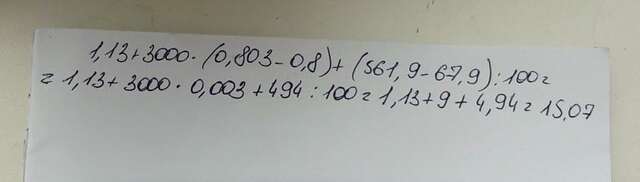 1,13+3000·(0,803-0,8)+(561,9-67,9):100=
=1,13+3000·0,003+494:100=1,13+9+4,94=15,07